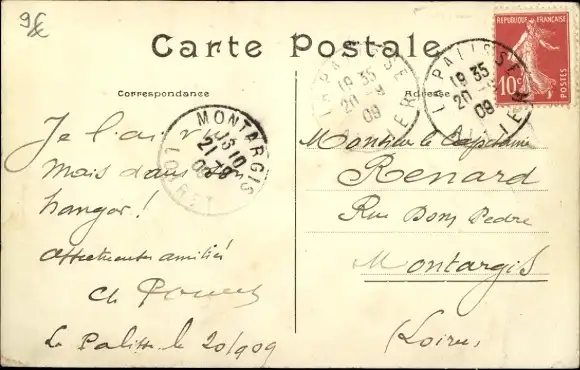 9€
Carte Postale
Correspondance
Adresse
REPUBLIQUE FRANÇAISE
10c
POSTES
LAPALISSE
19 35
20 -9
09
ALLIER
LAPALISSE
19 35
20 -9
09
ALLIER
MONTARGIS
15 10
21 -9
09
LOIRET
Je l'ai vu
mais dans son
hangar !
affectueuses amitiés
Ch
La Palisse le 20/9 09
Monsieur le Capitaine
Renard
Rue Dom Pedre
Montargis
(Loiret)